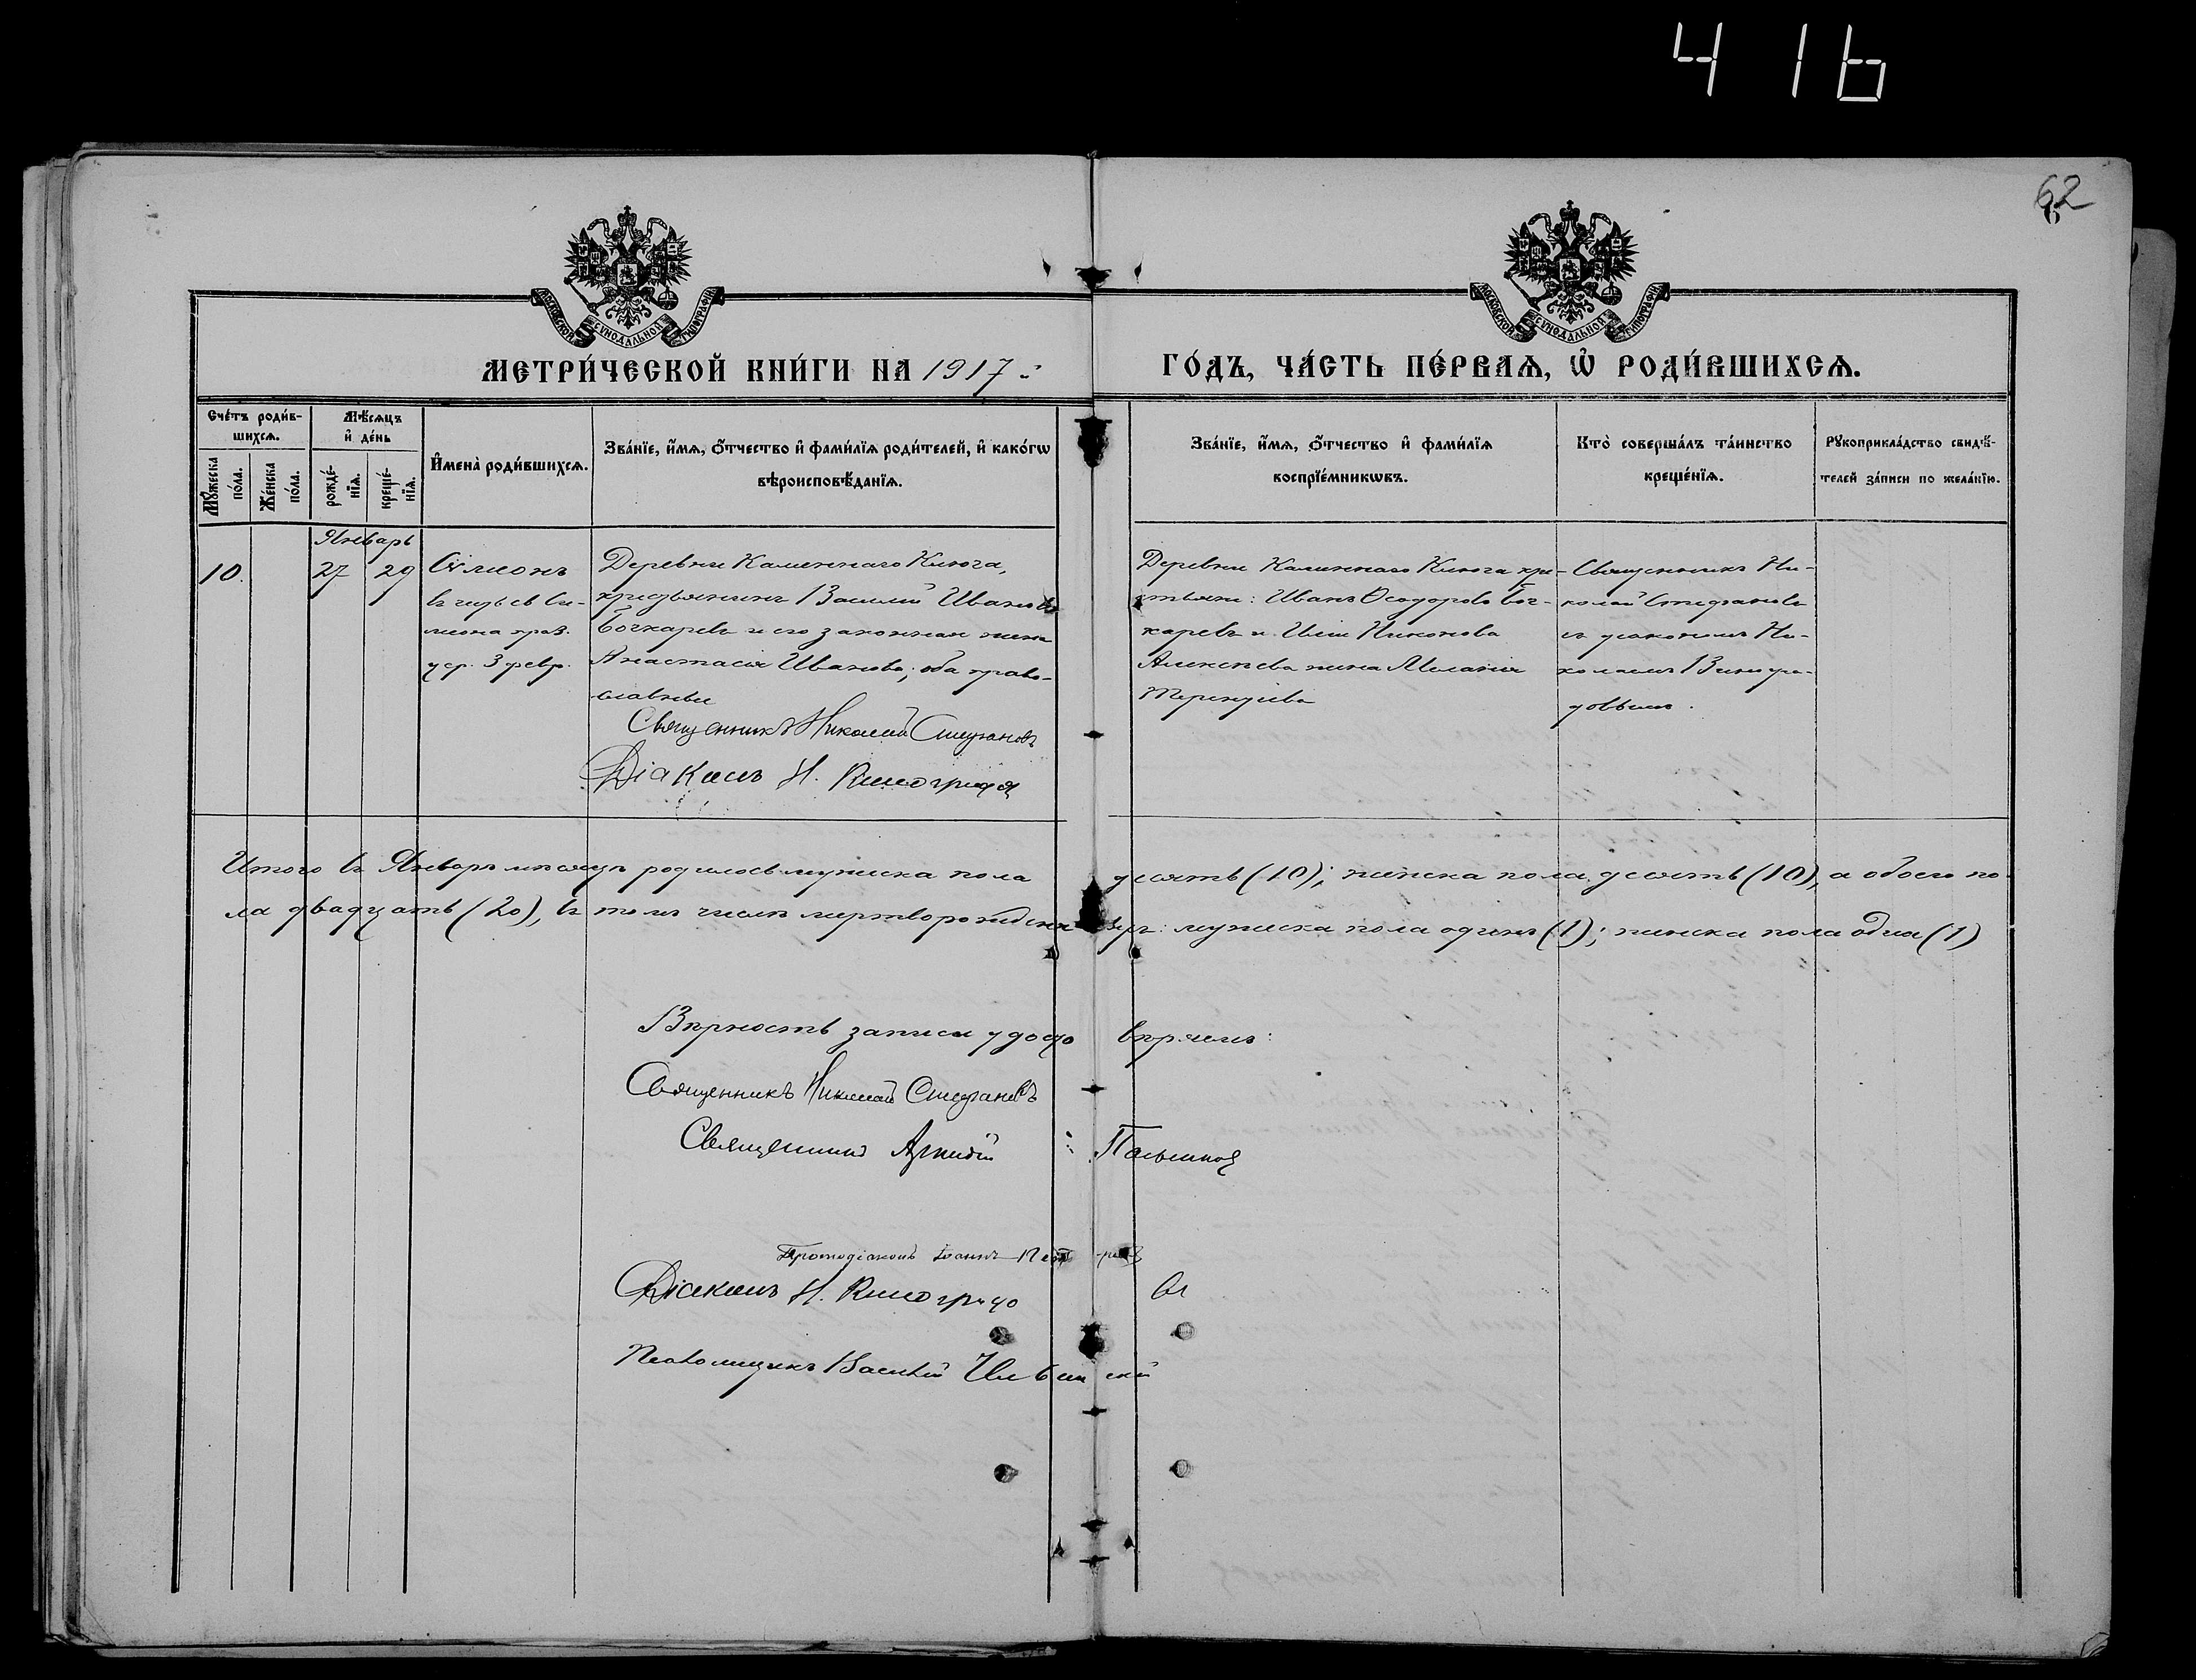 416
62
6
МОСКОВСКОЙ СѴНОДАЛЬНОЙ ТИПОГРАФІИ
МОСКОВСКОЙ СѴНОДАЛЬНОЙ ТИПОГРАФІИ
МЕТРИ́ЧЕСКОЙ КНИ́ГИ НА 1917
ГО́ДЪ, ЧА́СТЬ ПЕ́РВАѦ, Ѡ҆ РОДИ́ВШИХСѦ.
Сче́тъ роди́в-
шихсѧ.
Мѣ́сѧцъ
и҆ де́нь
Мꙋ́жеска по́ла.
Же́нска по́ла.
рожде́-нїѧ.
креще́-нїѧ.
И҆мена̀ роди́вшихсѧ.
Зва́нїе, и҆́мѧ, ѻ҆́тчество и҆ фами́лїѧ роди́телей, и҆ како́гѡ
вѣроисповѣ́данїѧ.
Зва́нїе, и҆́мѧ, ѻ҆́тчество и҆ фами́лїѧ
воспрїе́мникѡвъ.
Кто̀ соверша́лъ та́инство
креще́нїѧ.
Рꙋкоприкла́дство свидѣ́-
телей за́писи по жела́нїю.
Январь
10. 27 29
Сѵмеонъ
въ честь св Си-
меона прав.
уср. 3 февр.
Деревни Каменнаго Ключа,
крестьянинъ Василій Ивановъ
Бочкаревъ и его законная жена
Анастасія Иванова; оба право-
славные
Священникъ Николай Стефановъ
Діаконъ Н. Виноградов
Деревни Каменнаго Ключа кре-
стьяне: Иванъ Ѳеодоровъ Боч-
каревъ и Никонова
Алексѣева жена Меланія
Терентіева
Священникъ Ни-
колай Стефановъ
съ діакономъ Ни-
колаемъ Виногра-
довымъ.
Итого въ Январѣ мѣсяцѣ родилось мужеска пола десять (10); женска пола десять (10), а обоего по-
ла двадцать (20), въ томъ числѣ мертворожденныхъ: мужеска пола одинъ (1); женска пола одна (1)
Вѣрность записи удостовѣряемъ:
Священникъ Николай Стефановъ
Священникъ
Протодіаконъ Іоаннъ
Діаконъ Н. Виноградов
Псаломщикъ Василій